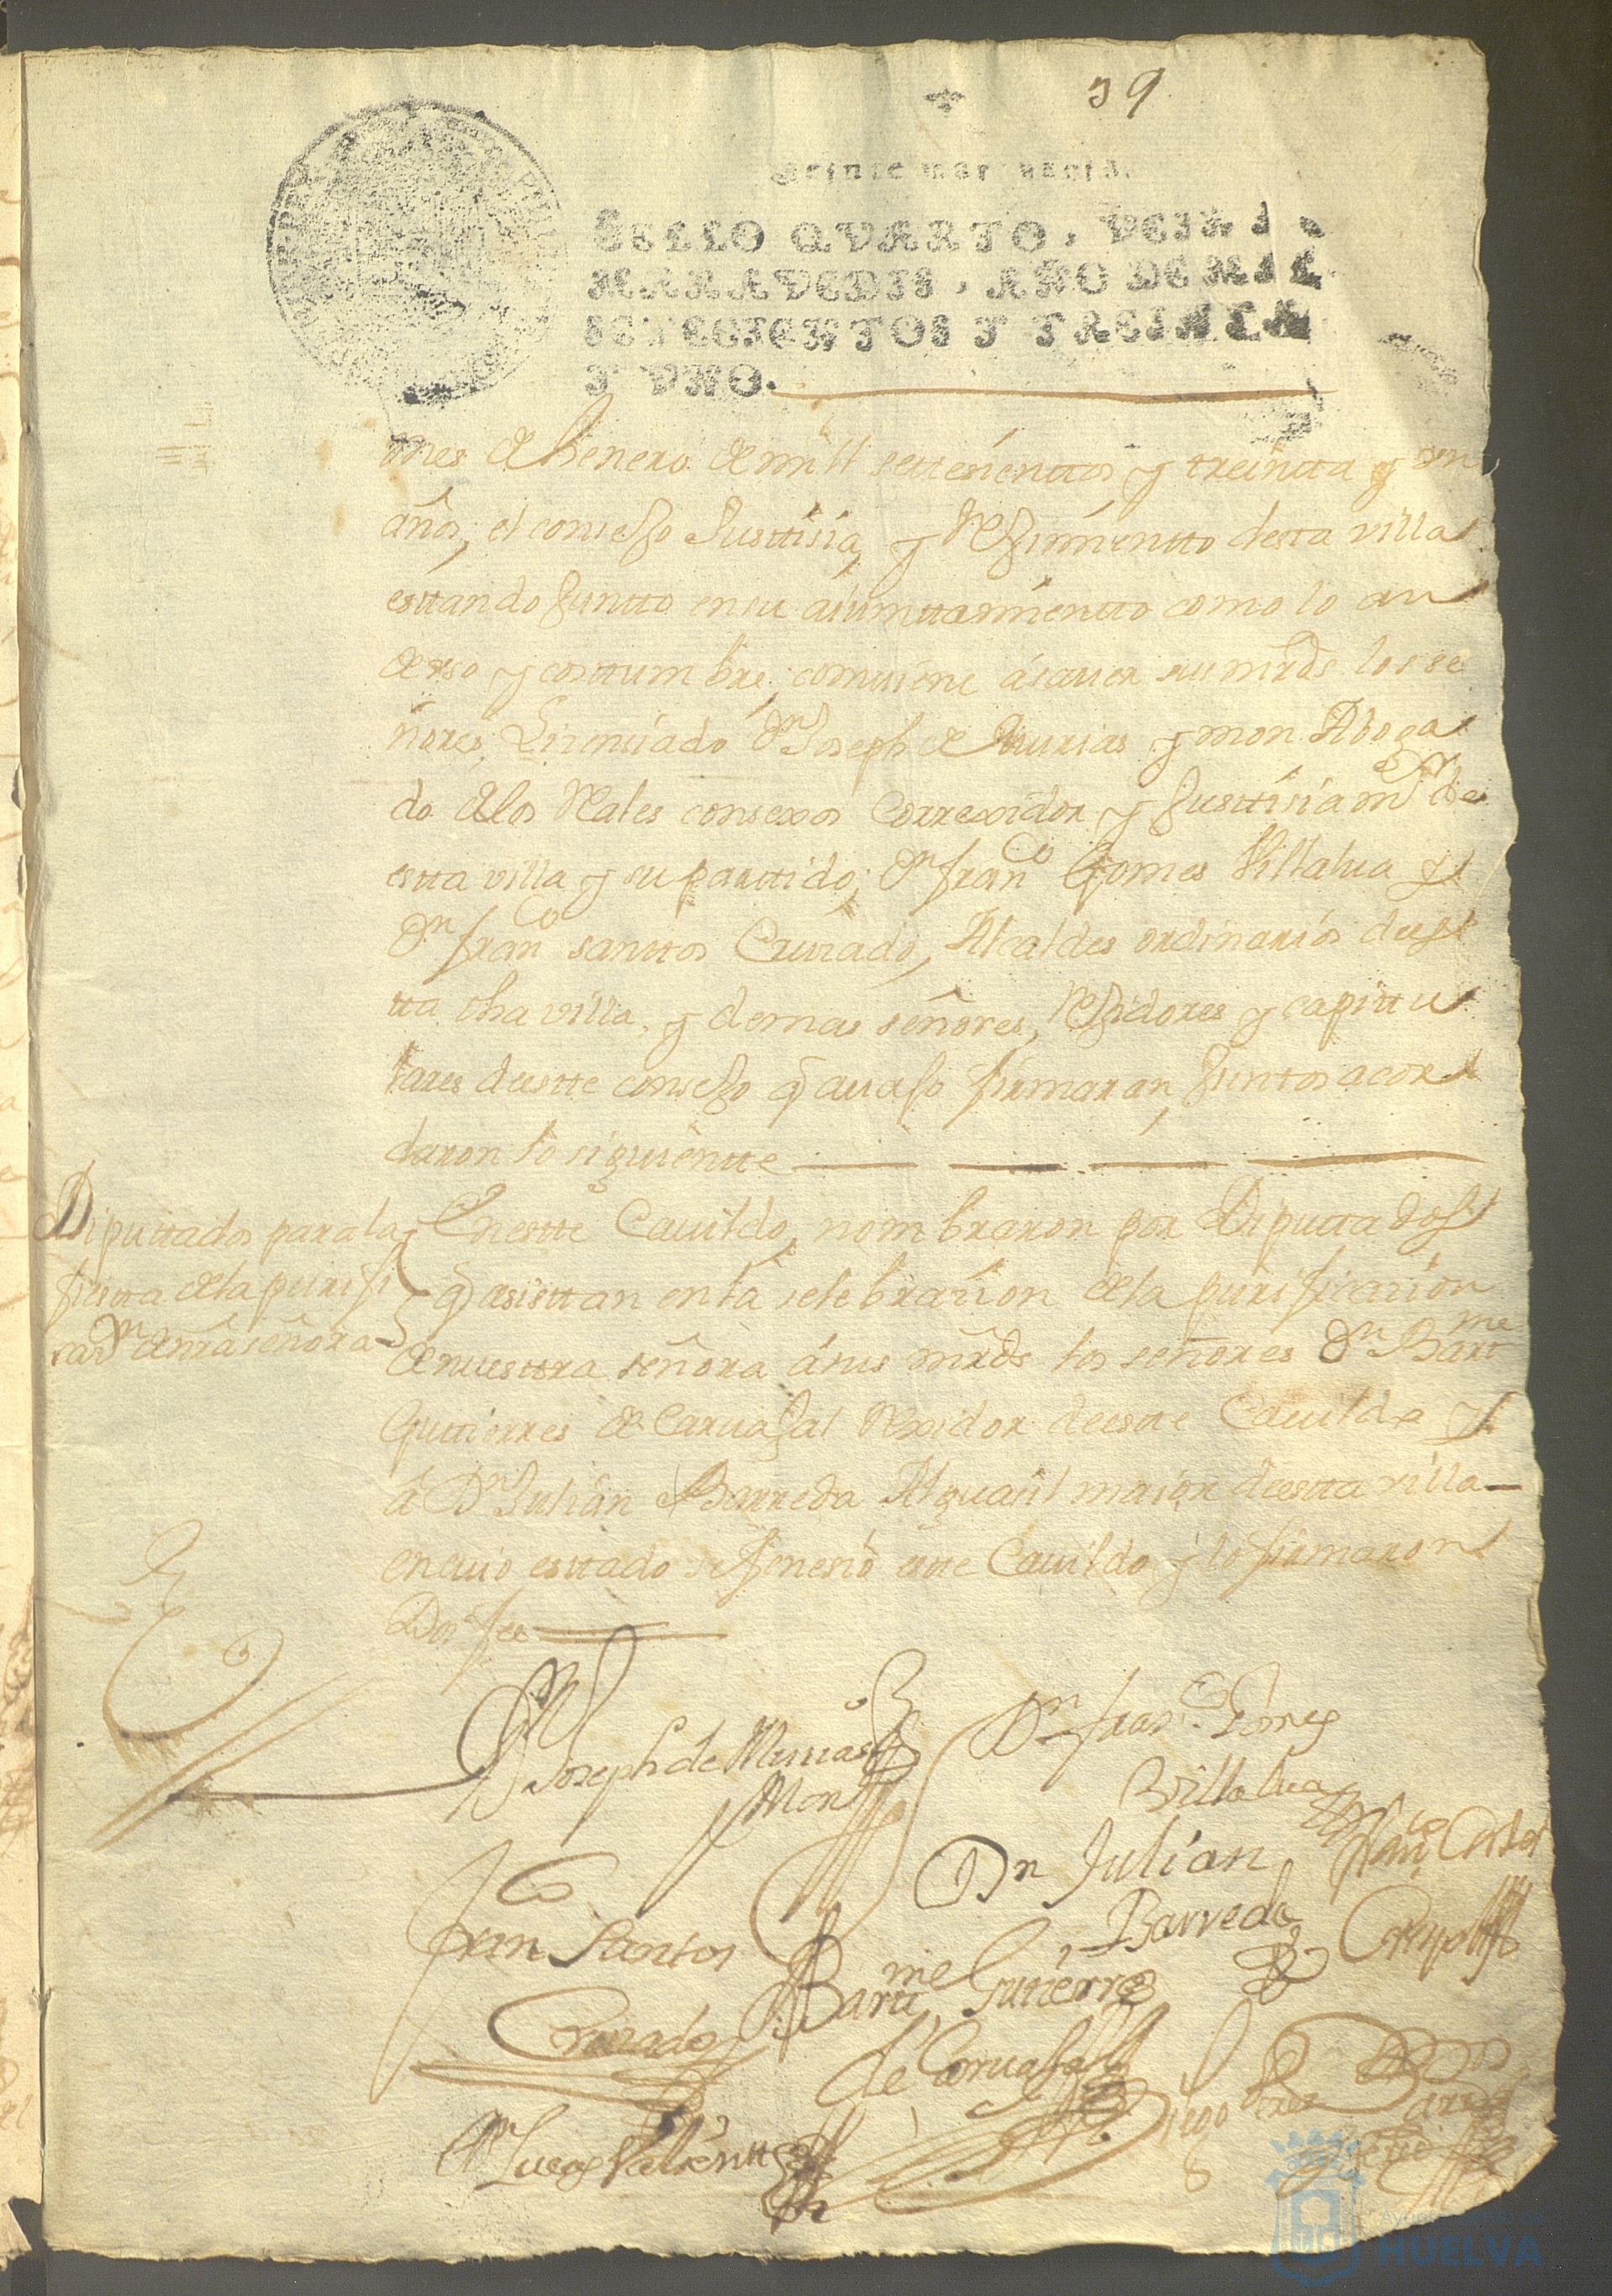 39
Veinte marauedis.
SELLO QVARTO, VEINTE
MARAVEDIS, AÑO DE MIL
SETECIENTOS Y TREINTA
Y VNO.
mes de henero de mill settesienttos y treintta y un
años, el consejo Justtisia, y Rejimientto desta villa
esttando juntto en su aiunttamientto como lo an
de vso y costtumbre, combiene á sauer sus mrds. los se
ñores, Lizenciado Dn Joseph de Murias y mon Aboga
do de los Rales consexos Correxidor y Justtisia mor de
estta villa y su parttido; Dn franco Gomes Villalua y
Dn franco santtos Criado, Alcaldes ordinarios de es
tta dha villa, y demas señores, Rejidores y capittu
lares de estte consejo q auajo firmaran, juntos acor
daron lo siguientte
Diputtados para la
fiesta de la purifi
cazn de nra señora
En estte Cauildo, nombraron por Diputtados
q asisttan en la selebracion de la purificacion
de nuestra señora á sus mrds los señores Dn Bartme
Guttierres de Caruajal Rexidor de estte Cauildo y
á Dn Julian Barreda Alguasil maior de estta villa
en cuio esttado se feneció este Cauildo y lo firmaron
Doi fee
Joseph de Murias
y Mon
Dn franco Gomes
Villalua
Fran co Santos
Criado
Dn Julian
Barreda
Bartme Gutierrez
de Caruajal
Dn Lucas Valiente
Diego Perez
Ayuntamiento de
HUELVA